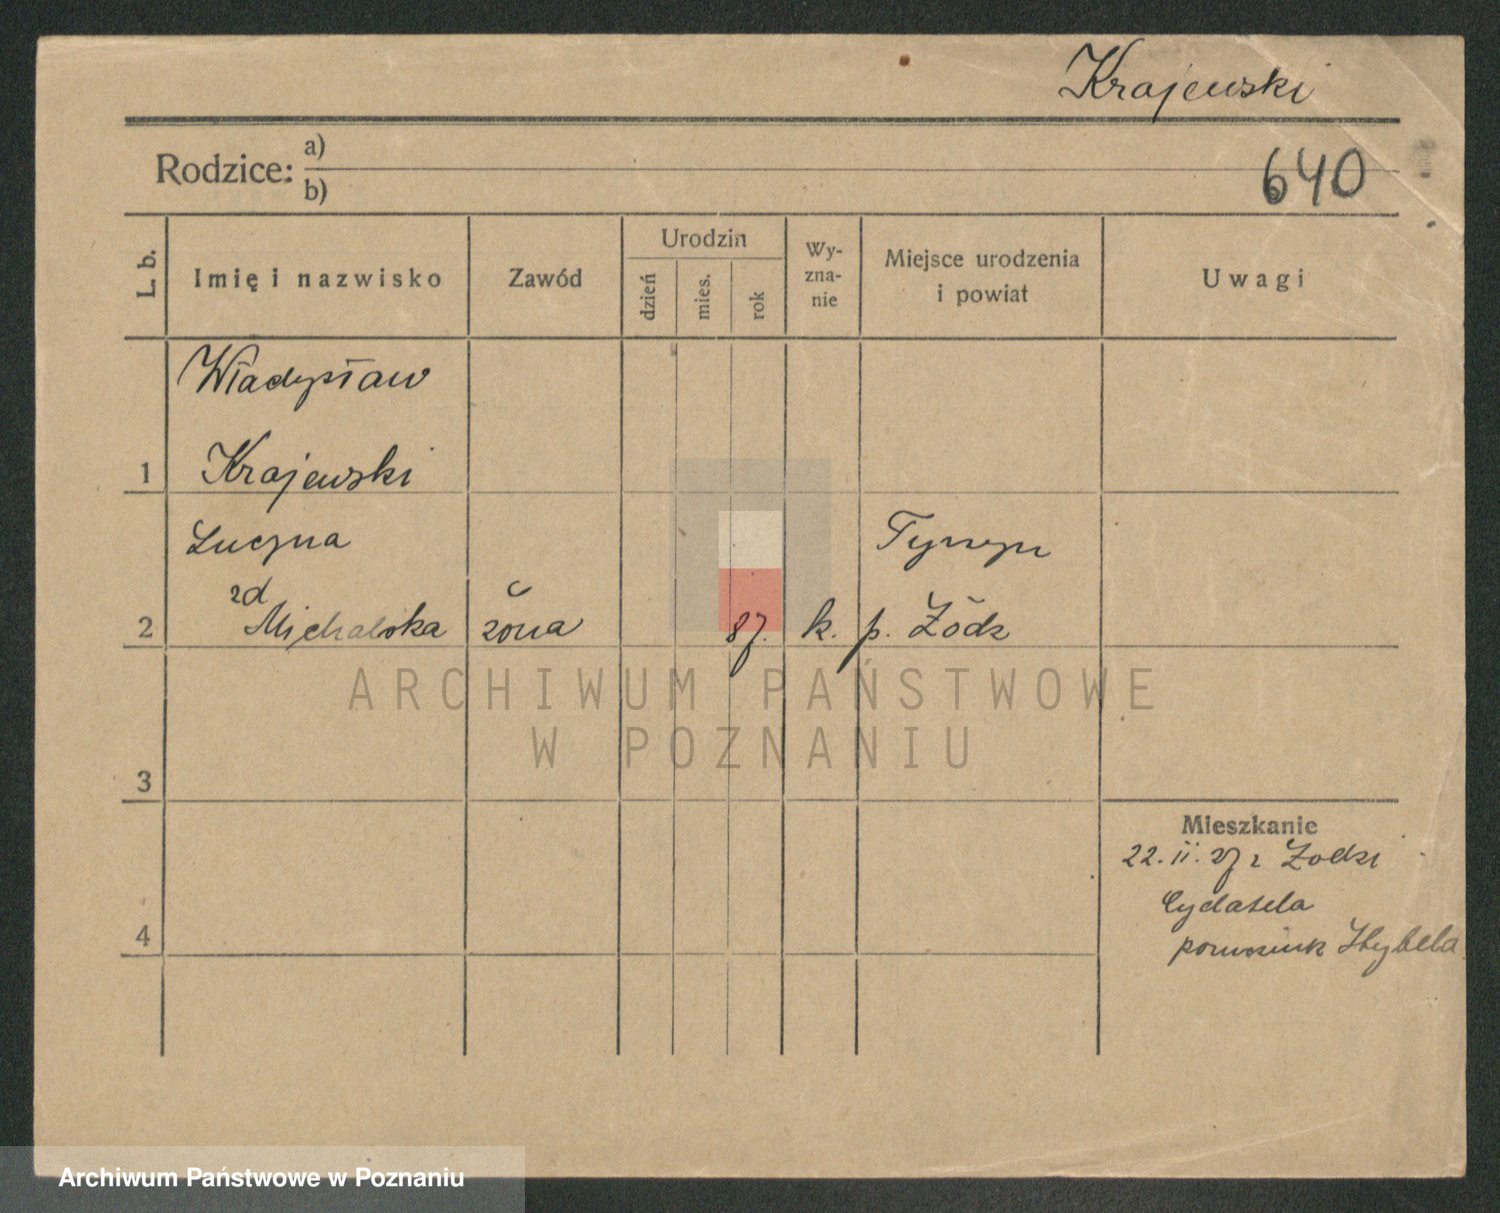 Krajewski
Rodzice: a)
b)
640
L. b.
Imię i nazwisko
Zawód
Urodzin
dzień
mies.
rok
Wy-
zna-
nie
Miejsce urodzenia
i powiat
Uwagi
Władysław
1 Krajewski
Lucyna
zd
2 Michalska żona 87. k. p. Łódz
ARCHIWUM PAŃSTWOWE
W POZNANIU
3
Mieszkanie
22. II. 27 z Łodzi
Cydatela
4
Archiwum Państwowe w Poznaniu